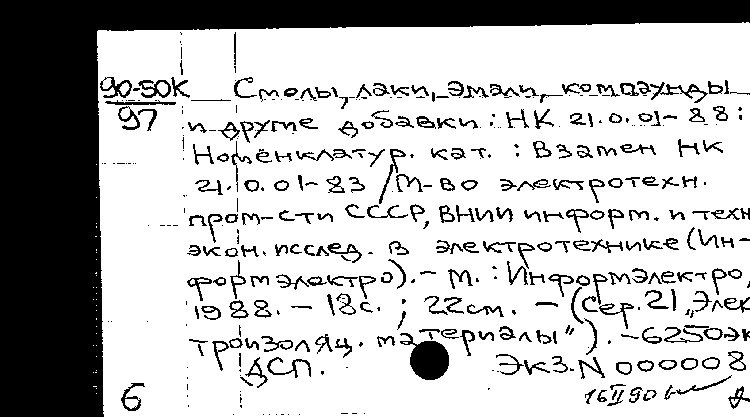 90-50К Смолы, лаки, эмали, компаунды
97 и другие добавки : НК 21.0.01-88 :
Номенклатур. кат. : Взамен НК
21.0.01-83 / М-во электротехн.
пром-сти СССР, ВНИИ информ. и техн
экон. исслед. в электротехнике (Ин-
формэлектро). - М. : Информэлектро,
1988. - 18с. ; 22см. - (Сер. 21 „Элек
троизоляц. материалы"). - 6250эк
ДСП. Экз. N 000008
6 16 II 90